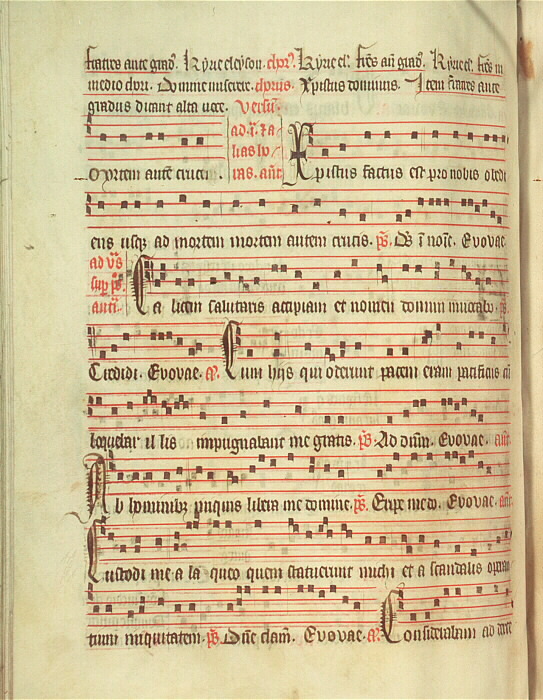 fratres ante grad᷑. Kyrieeleyson. chor᷑. Kyriel᷑. fr̄es añ grad᷑. Kyriel᷑. fr̄es in
medio chori. Domine miserere. chorus. Xpistus dominus. Item fratres ante
gradus dicant alta voce. Versus.
Mortem autē crucis.
ad. i. ta
lias lv
ias. añt
Xpistus factus est pro nobis obedi
ens usq; ad mortem mortem autem crucis. ps. Ds ī noīe. Evovae.
ad v̄s
sup ps.
anti.
Calicem salutaris accipiam et nomen domini invocabo. ps.
Credidi. Evovae. a. Cum hijs qui oderunt pacem eram pacificus cū
loquebar illis impugnabant me gratis. ps. Ad dn̄m. Evovae. añt
Ab hominibz iniquis libera me domine. ps. Eripe me d. Evovae. añt
Custodi me a laqueo quem statuerunt michi et a scandalis operan
tium iniquitatem. ps. Dn̄e clam. Evovae. a. Considerabam ad dexte